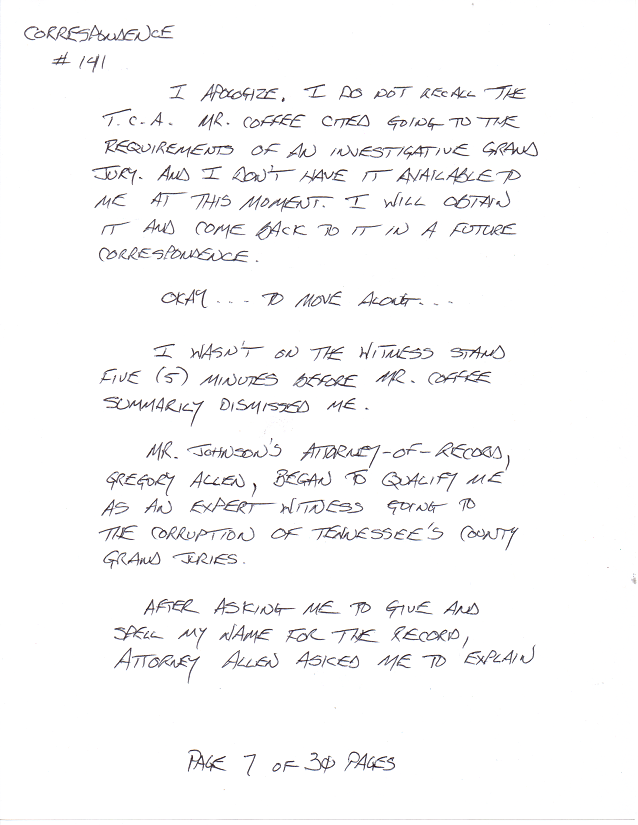 CORRESPONDENCE
# 141
I APOLOGIZE. I DO NOT RECALL THE
T.C.A. MR. COFFEE CITED GOING TO THE
REQUIREMENTS OF AN INVESTIGATIVE GRAND
JURY. AND I DON'T HAVE IT AVAILABLE TO
ME AT THIS MOMENT. I WILL OBTAIN
IT AND COME BACK TO IT IN A FUTURE
CORRESPONDENCE.
OKAY... TO MOVE ALONG...
I WASN'T ON THE WITNESS STAND
FIVE (5) MINUTES BEFORE MR. COFFEE
SUMMARILY DISMISSED ME.
MR. JOHNSON'S ATTORNEY-OF-RECORD,
GREGORY ALLEN, BEGAN TO QUALIFY ME
AS AN EXPERT WITNESS GOING TO
THE CORRUPTION OF TENNESSEE'S COUNTY
GRAND JURIES.
AFTER ASKING ME TO GIVE AND
SPELL MY NAME FOR THE RECORD,
ATTORNEY ALLEN ASKED ME TO EXPLAIN
PAGE 7 OF 30 PAGES